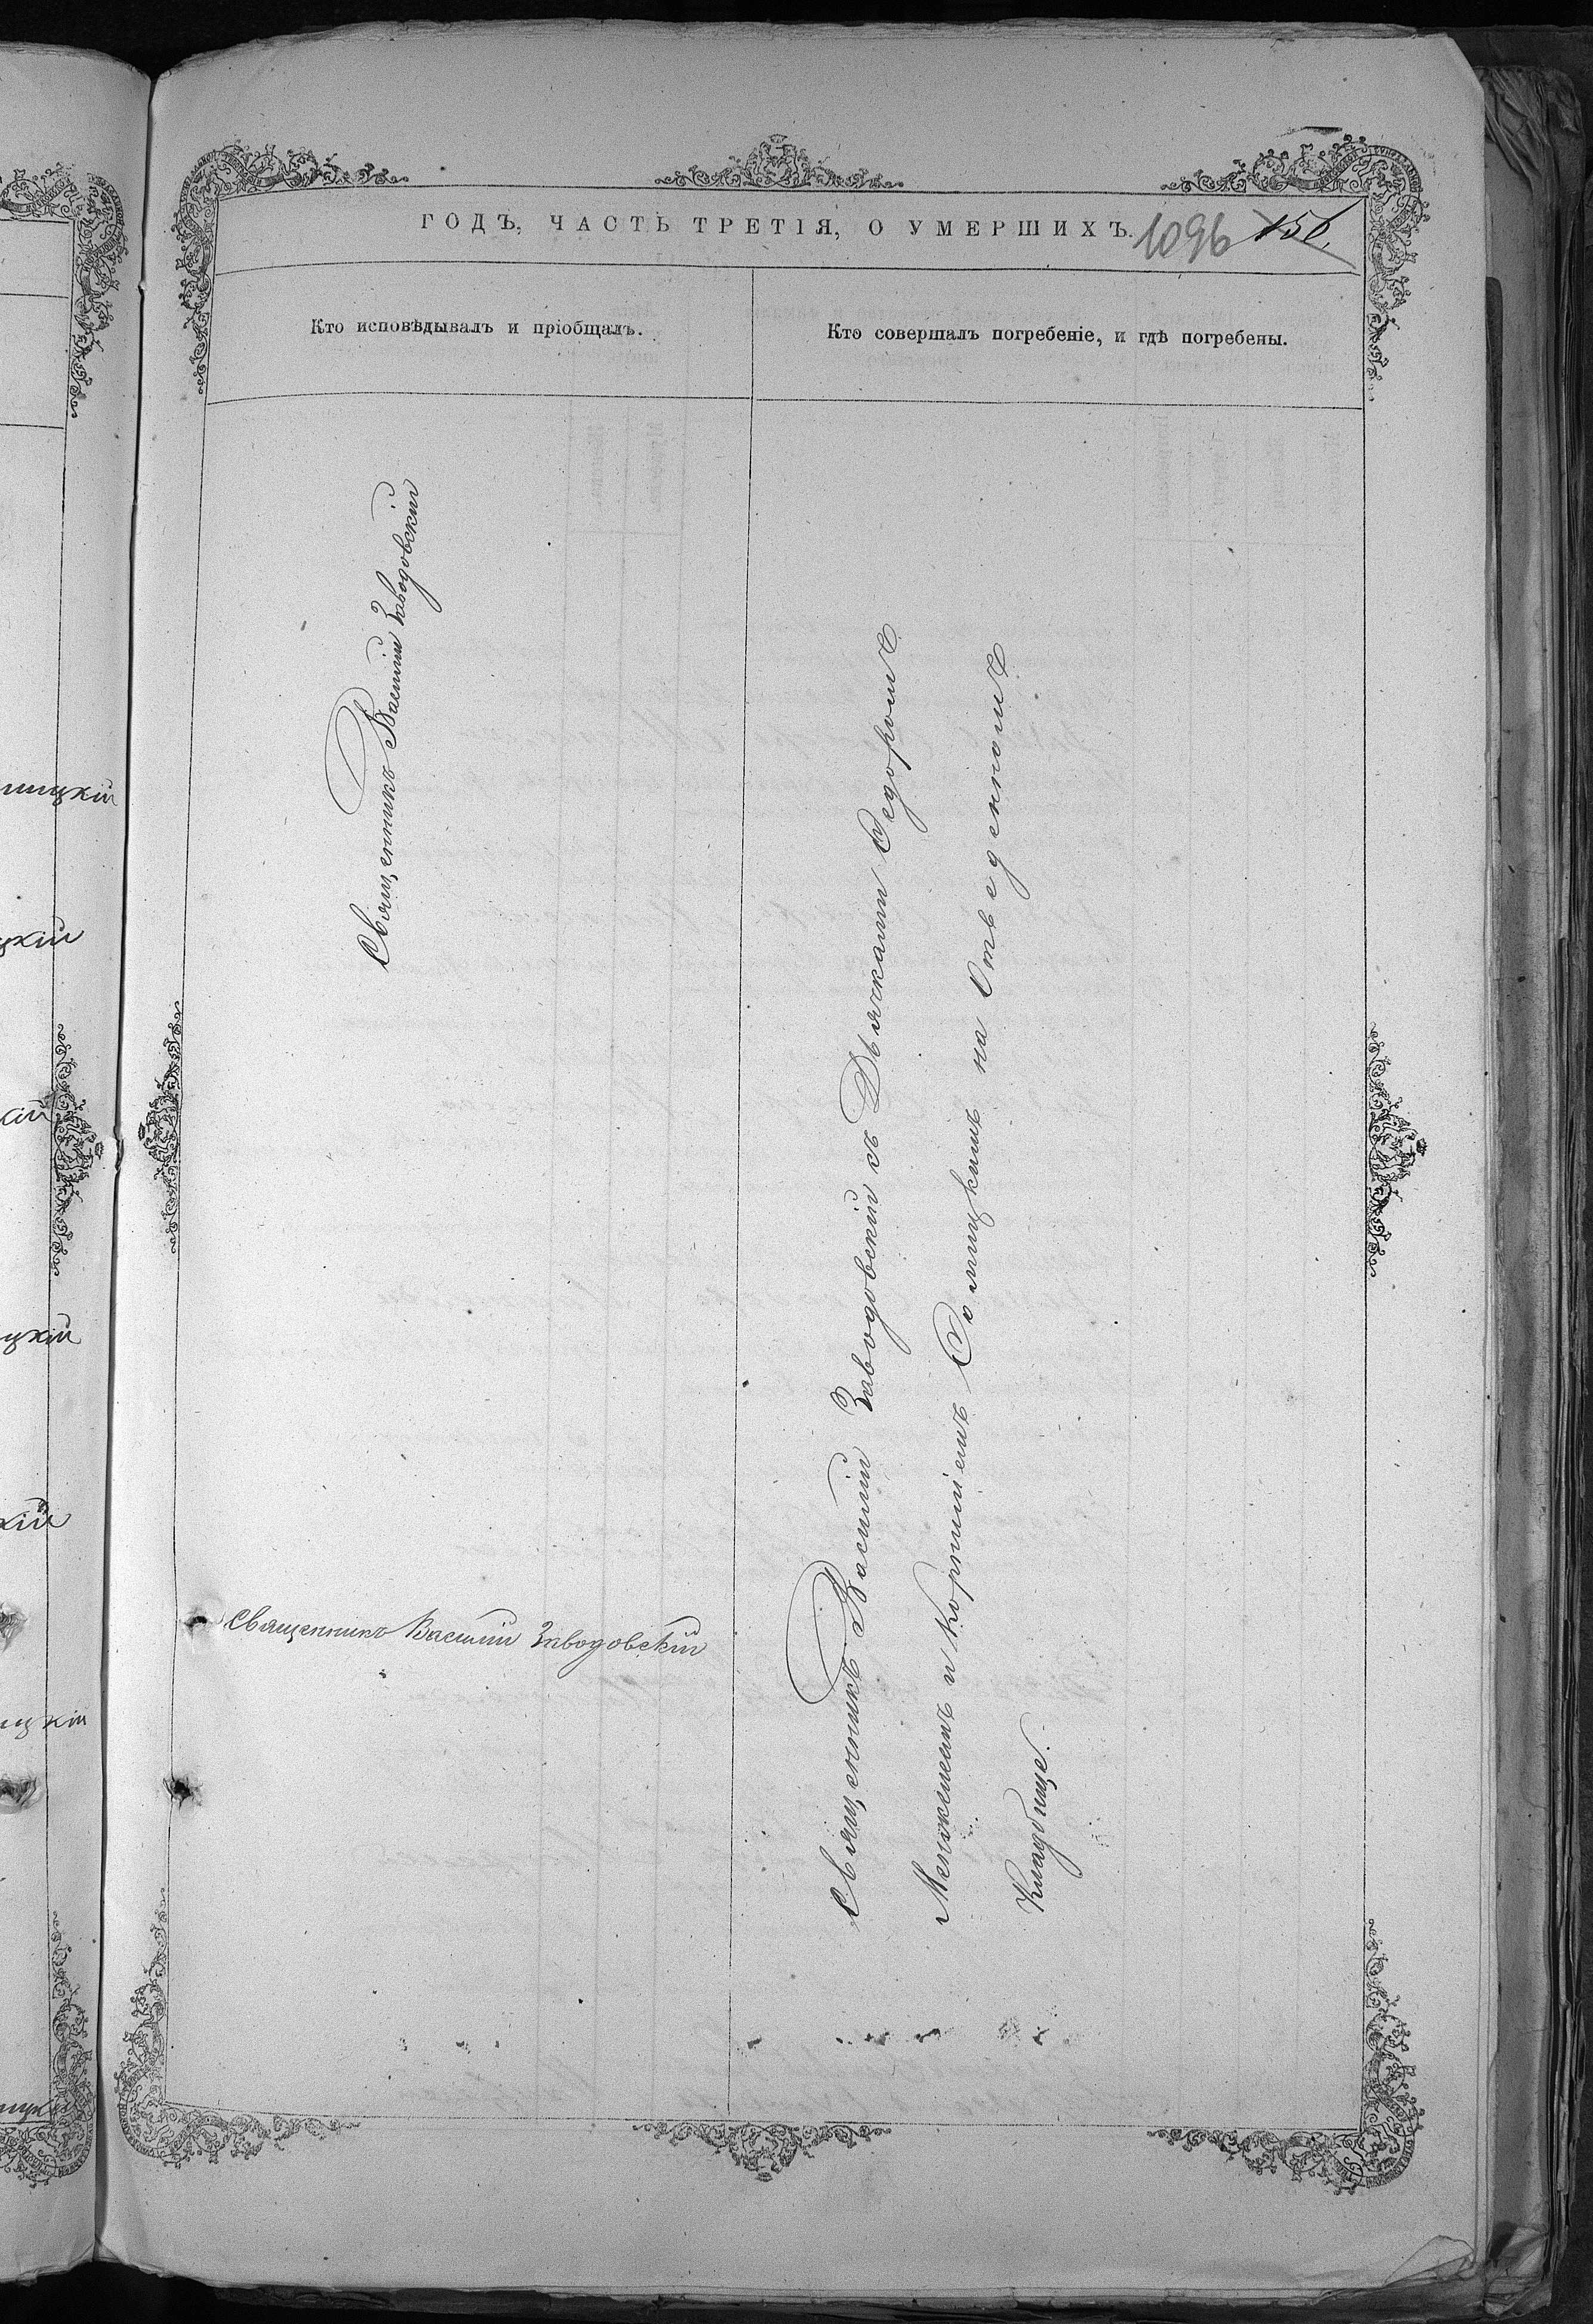 ГОДЪ, ЧАСТЬ ТРЕТІЯ, О УМЕРШИХЪ.
1096 156.
Кто исповѣдывалъ и пріобщалъ.
Кто совершалъ погребеніе, и гдѣ погребены.
Священникъ Василій Заводовскій
Священникъ Василій Заводовскій
Священникъ Василій Заводовскій съ Дьячками Ѳедоромъ
и Корниліемъ на Отведенномъ
Кладбище.
цкій
кій
цкій
кій